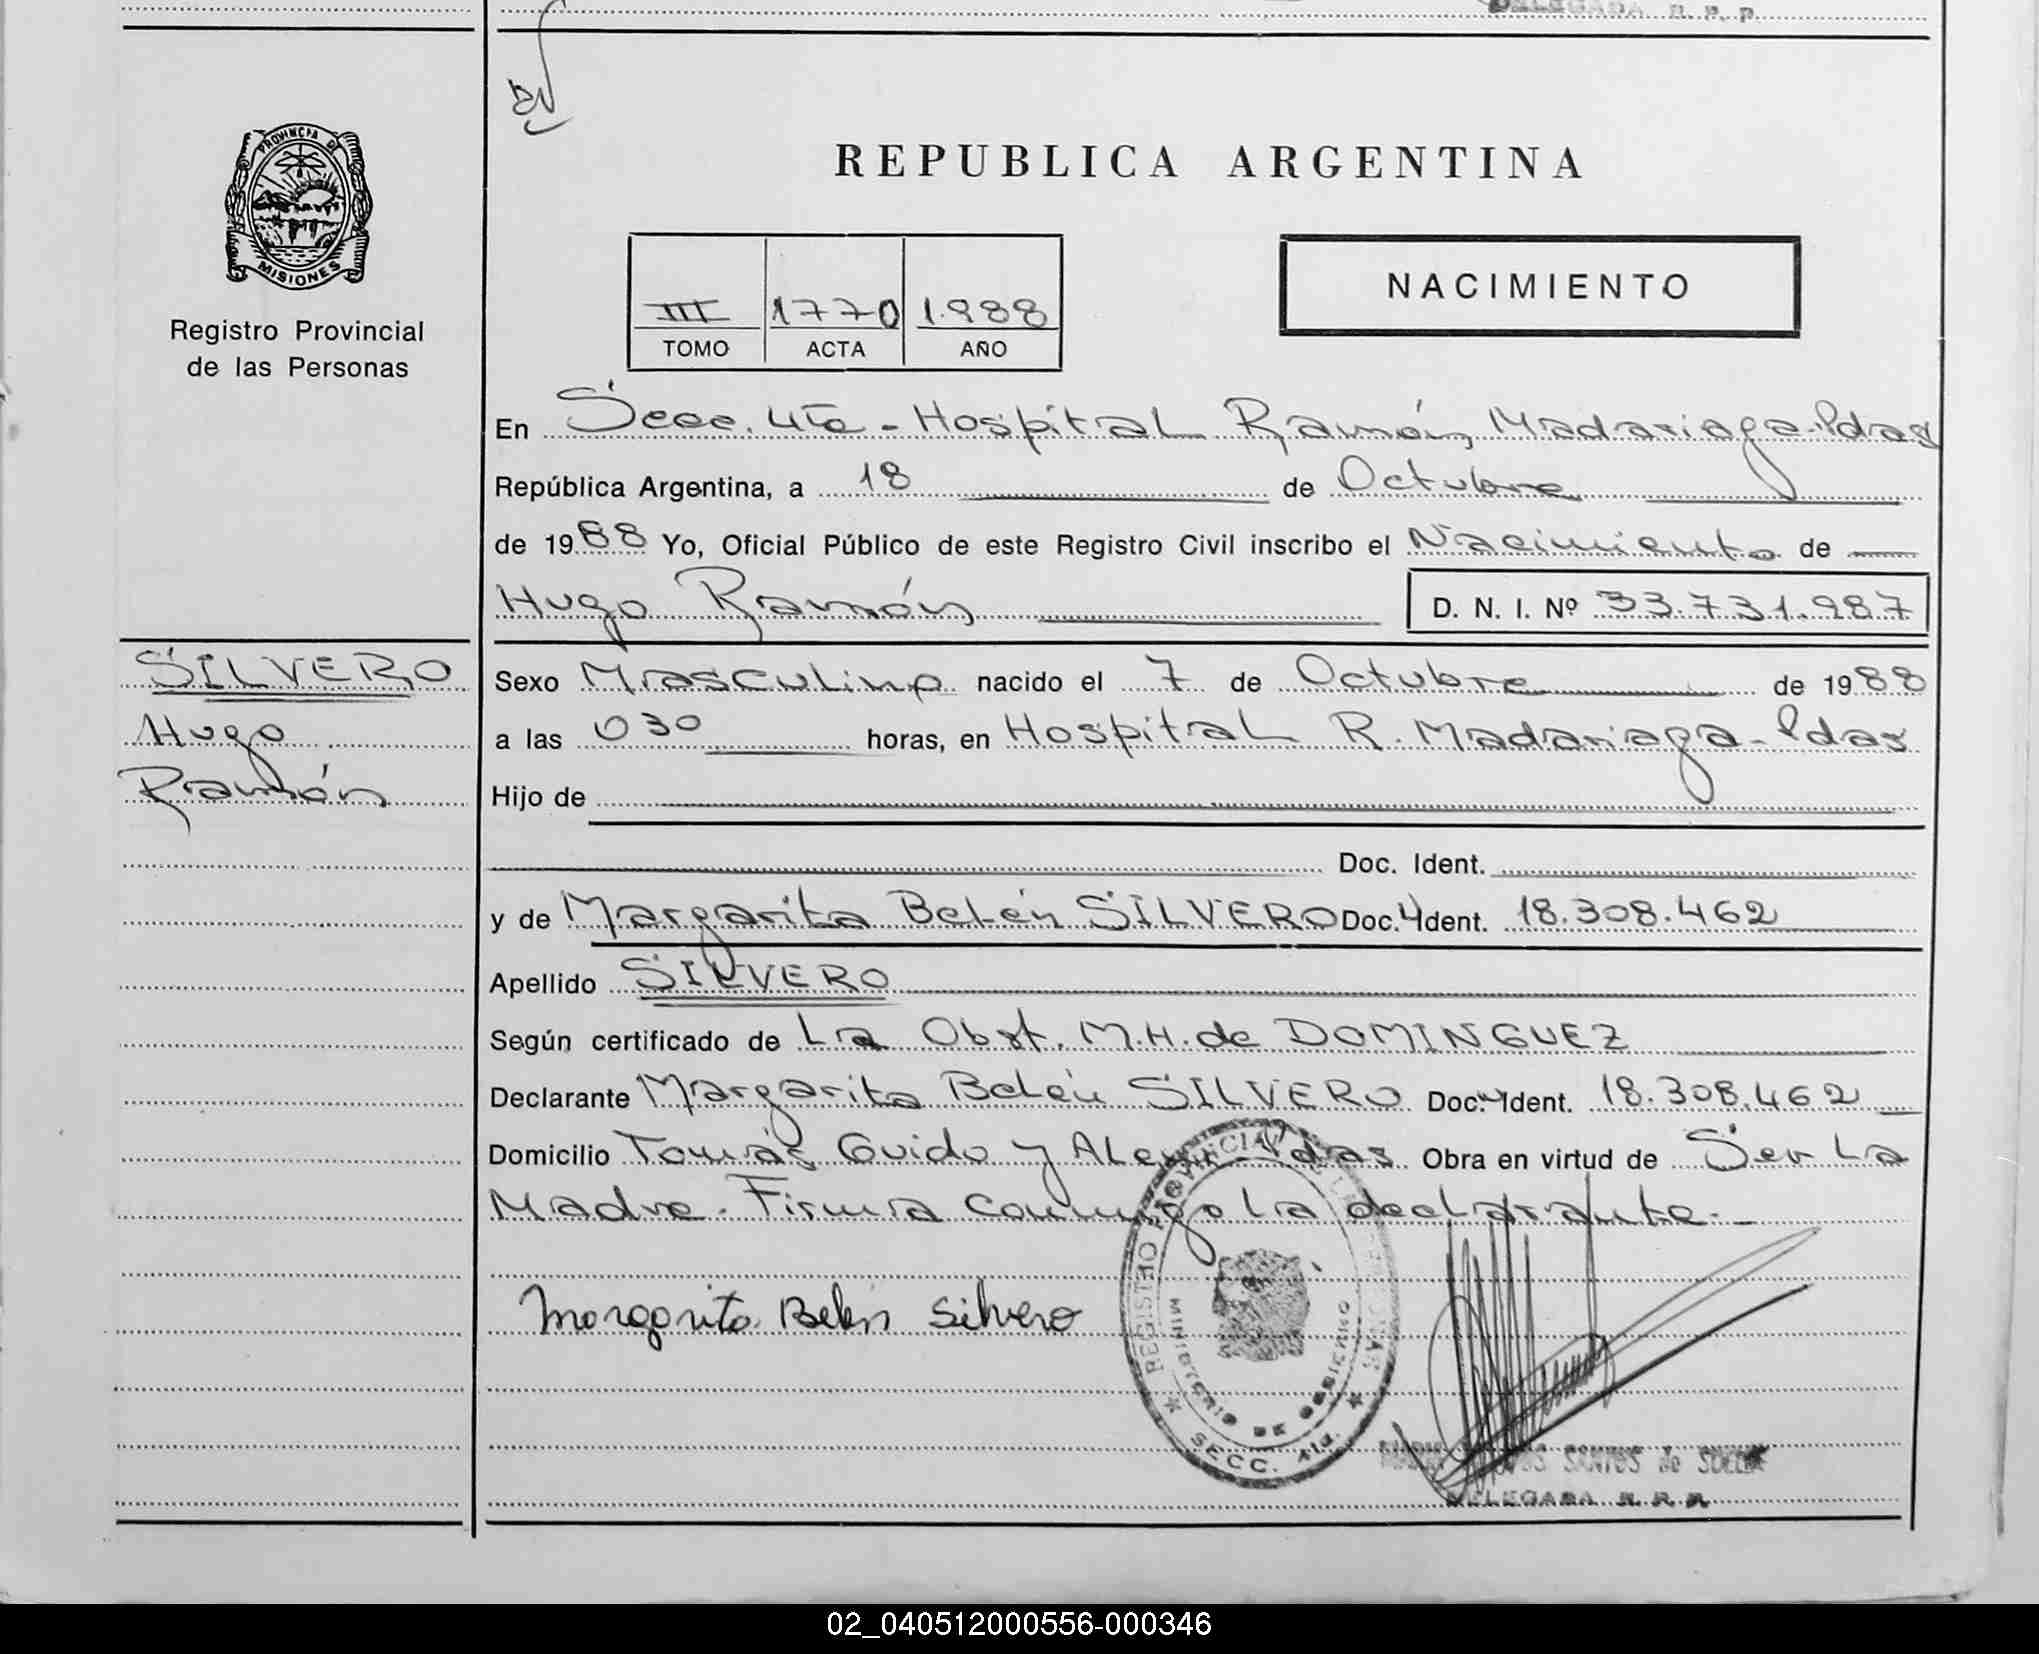 DELEGADA R. P. P.
PROVINCIA DE
MISIONES
Registro Provincial
de las Personas
REPUBLICA ARGENTINA
NACIMIENTO
III 1770 1.988
TOMO ACTA AÑO
En Secc. 4ta - Hospital Ramón Madariaga-Pdas
República Argentina, a 18 de Octubre
de 1988 Yo, Oficial Público de este Registro Civil inscribo el Nacimiento de
Hugo Ramón D. N. I. Nº 33.731.987
SILVERO
Hugo
Ramón
Sexo Masculino nacido el 7 de Octubre de 1988
a las 030 horas, en Hospital R. Madariaga-Pdas
Hijo de
Doc. Ident.
y de Margarita Belén SILVERO Doc. Ident. 18.308.462
Apellido SILVERO
Según certificado de La Obst. M.H. de DOMINGUEZ
Declarante Margarita Belén SILVERO Doc. Ident. 18.308.462
Domicilio Tomás Guido y Alem-Pdas Obra en virtud de Ser La
Madre. Firma conmigo La declarante.-
Margarita Belén Silvero
REGISTRO PROVINCIAL DE LAS PERSONAS
MINISTERIO DE GOBIERNO
SECC. 4ta.
SANTOS de
DELEGADA R. P. P.
02_040512000556-000346